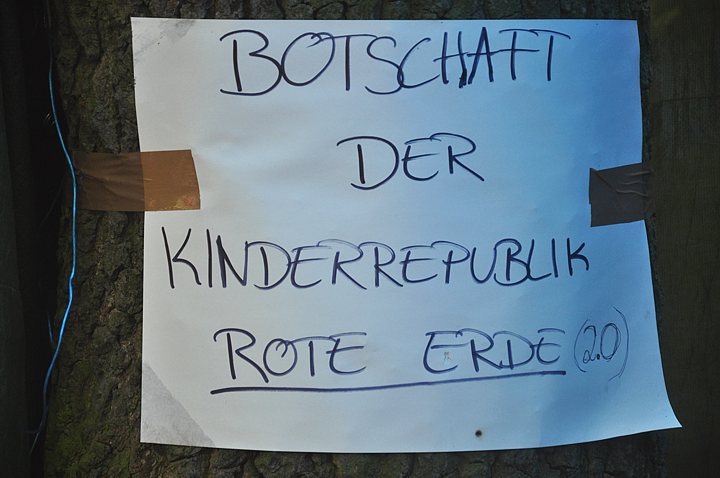 BOTSCHAFT
DER
KINDERREPUBLIK
ROTE ERDE (2.0)